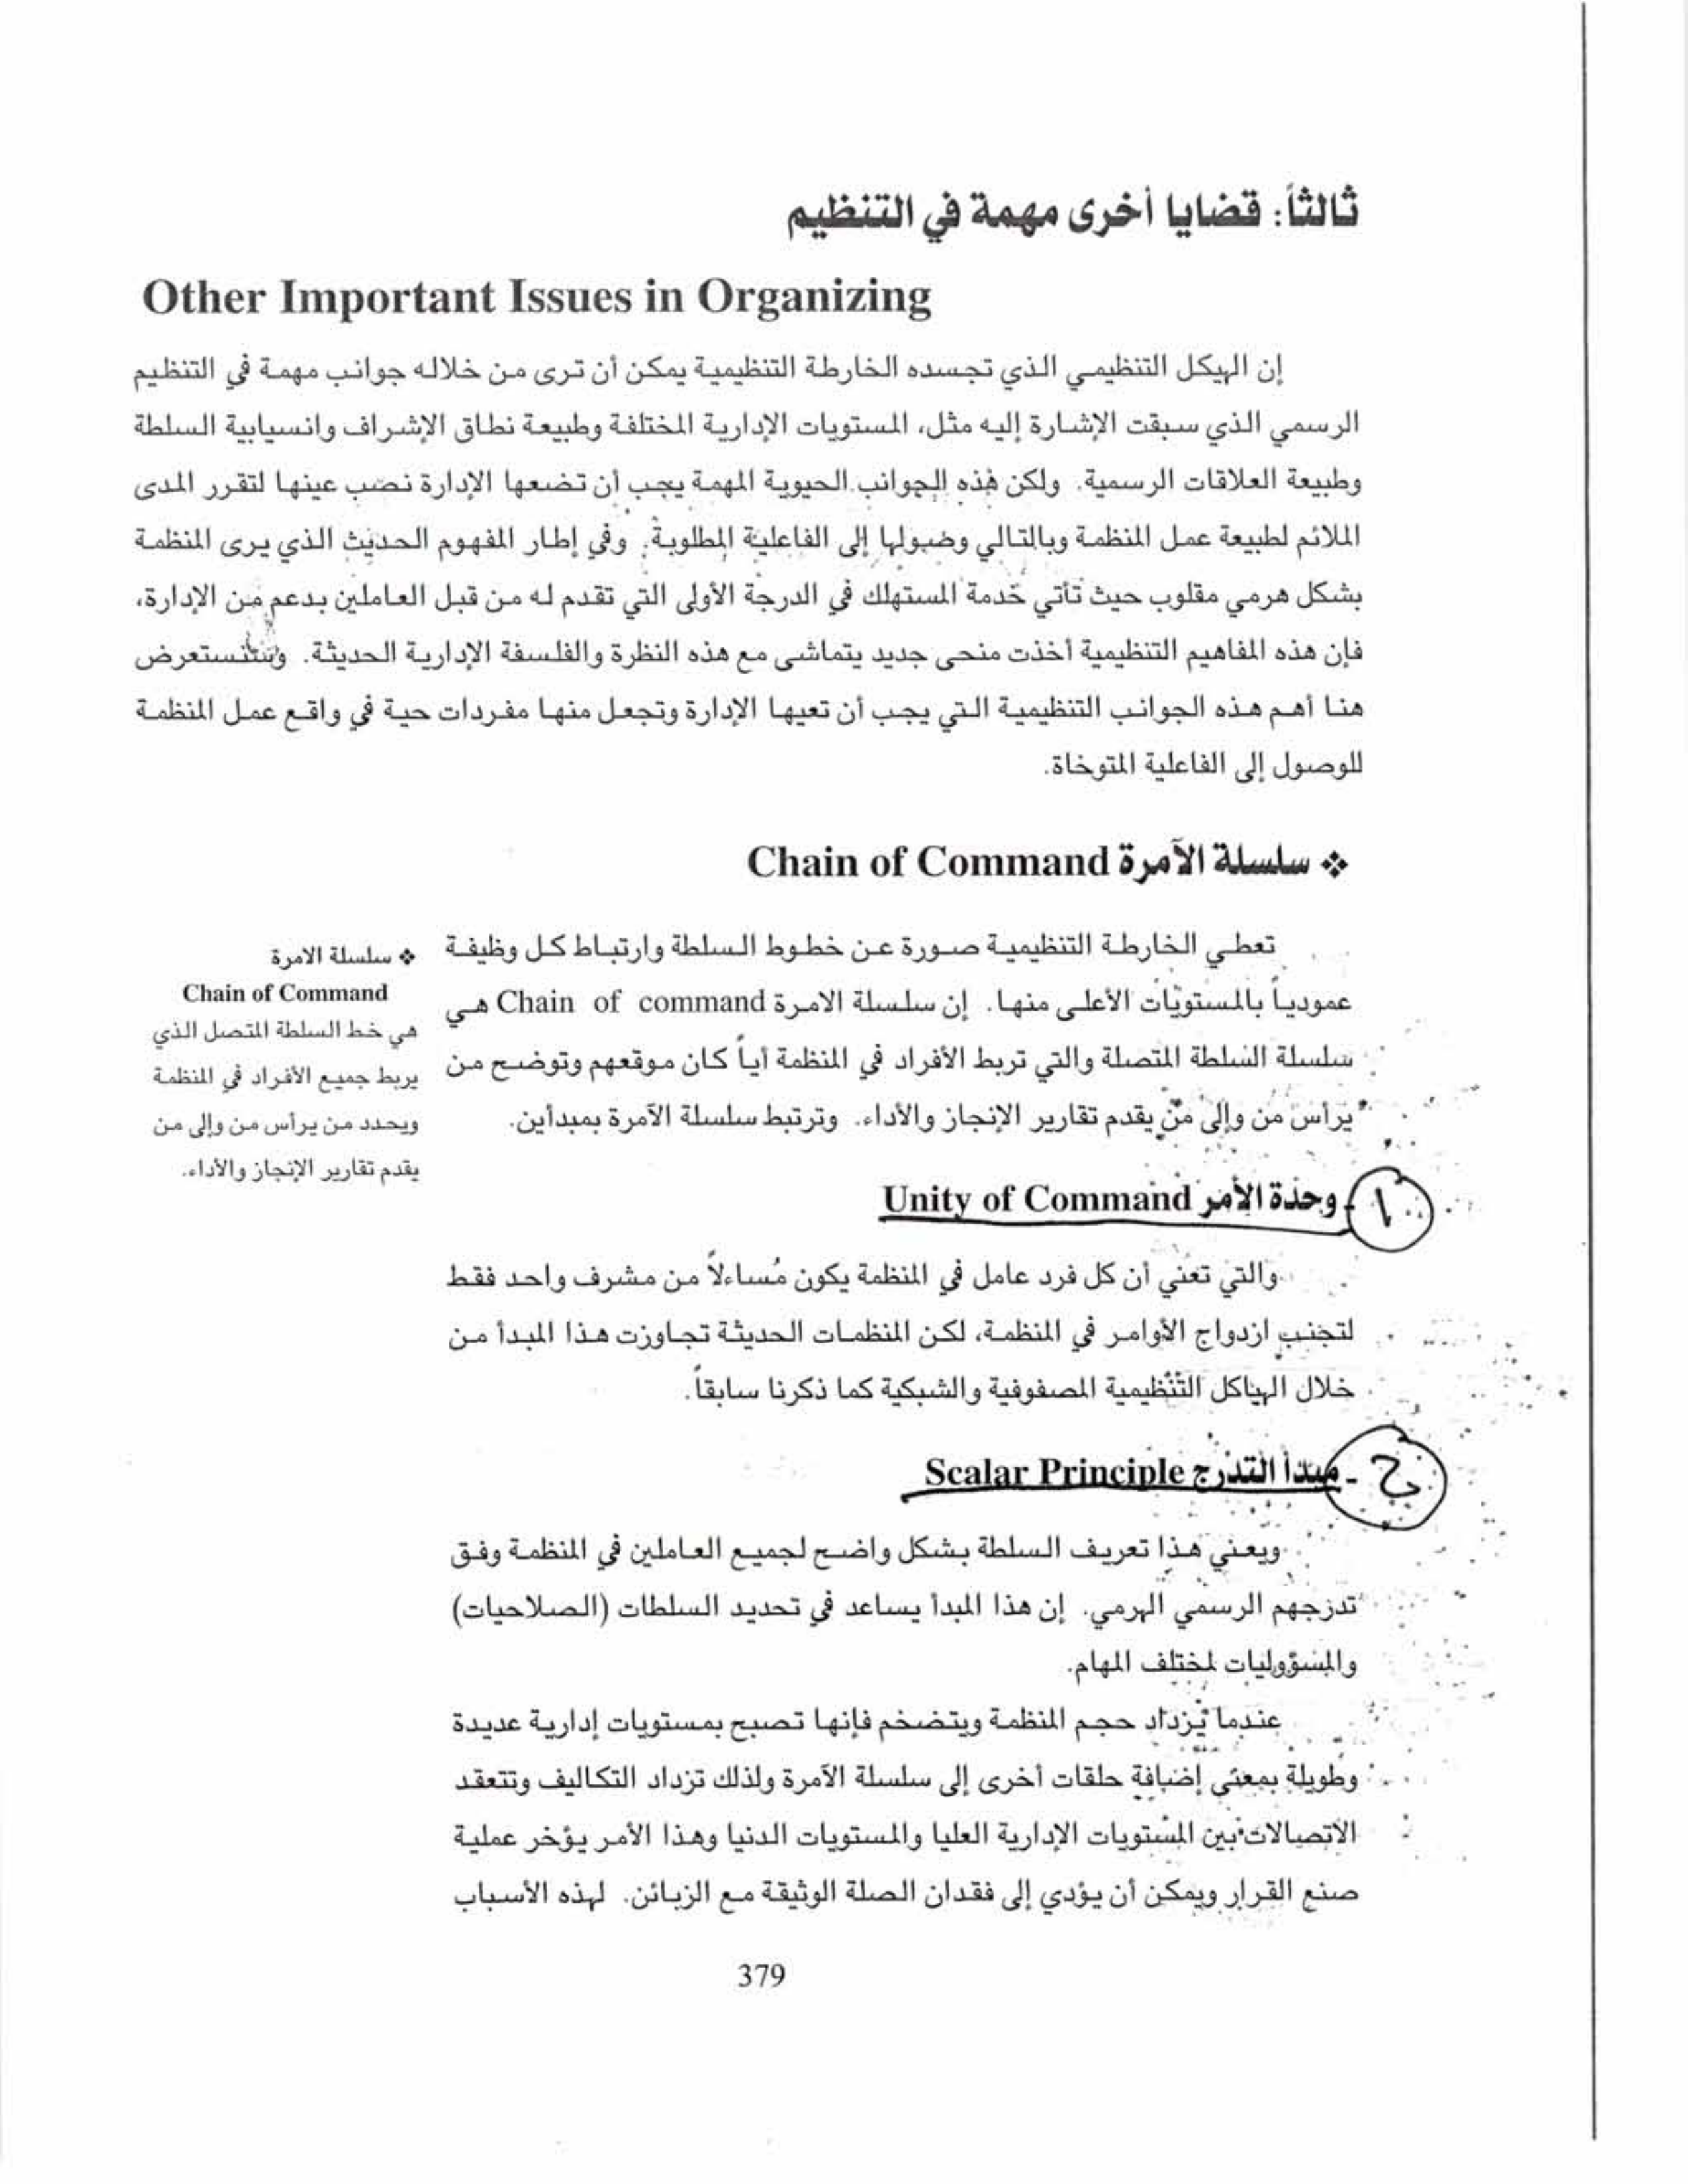 ثالثاً: قضايا أخرى مهمة في التنظيم
Other Important Issues in Organizing
إن الهيكل التنظيمي الذي تجسده الخارطة التنظيمية يمكن أن ترى من خلاله جوانب مهمة في التنظيم
الرسمي الذي سبقت الإشارة إليه مثل، المستويات الإدارية المختلفة وطبيعة نطاق الإشراف وانسيابية السلطة
وطبيعة العلاقات الرسمية. ولكن هذه الجوانب الحيوية المهمة يجب أن تضعها الإدارة نصب عينها لتقرر المدى
الملائم لطبيعة عمل المنظمة وبالتالي وصولها إلى الفاعلية المطلوبة. وفي إطار المفهوم الحديث الذي يرى المنظمة
بشكل هرمي مقلوب حيث تأتي خدمة المستهلك في الدرجة الأولى التي تقدم له من قبل العاملين بدعم من الإدارة،
فإن هذه المفاهيم التنظيمية أخذت منحى جديد يتماشى مع هذه النظرة والفلسفة الإدارية الحديثة. وسنستعرض
هنا أهم هذه الجوانب التنظيمية التي يجب أن تعيها الإدارة وتجعل منها مفردات حية في واقع عمل المنظمة
للوصول إلى الفاعلية المتوخاة.
❖ سلسلة الآمرة Chain of Command
تعطي الخارطة التنظيمية صورة عن خطوط السلطة وارتباط كل وظيفة
عمودياً بالمستويات الأعلى منها. إن سلسلة الامرة Chain of command هي
سلسلة السلطة المتصلة والتي تربط الأفراد في المنظمة أياً كان موقعهم وتوضح من
يرأس من وإلى من يقدم تقارير الإنجاز والأداء. وترتبط سلسلة الآمرة بمبدأين.
❖ سلسلة الامرة
Chain of Command
هي خط السلطة المتصل الذي
يربط جميع الأفراد في المنظمة
ويحدد من يرأس من وإلى من
يقدم تقارير الإنجاز والأداء.
١ - وحدة الأمر Unity of Command
والتي تعني أن كل فرد عامل في المنظمة يكون مُساءلاً من مشرف واحد فقط
لتجنب ازدواج الأوامر في المنظمة، لكن المنظمات الحديثة تجاوزت هذا المبدأ من
خلال الهياكل التنظيمية المصفوفية والشبكية كما ذكرنا سابقاً.
ـ مبدأ التدرج Scalar Principle
ويعني هذا تعريف السلطة بشكل واضح لجميع العاملين في المنظمة وفق
تدرجهم الرسمي الهرمي. إن هذا المبدأ يساعد في تحديد السلطات (الصلاحيات)
والمسؤوليات لمختلف المهام.
عندما يزداد حجم المنظمة ويتضخم فإنها تصبح بمستويات إدارية عديدة
وطويلة بمعنى إضافة حلقات أخرى إلى سلسلة الآمرة ولذلك تزداد التكاليف وتتعقد
الاتصالات بين المستويات الإدارية العليا والمستويات الدنيا وهذا الأمر يؤخر عملية
صنع القرار ويمكن أن يؤدي إلى فقدان الصلة الوثيقة مع الزبائن. لهذه الأسباب
379